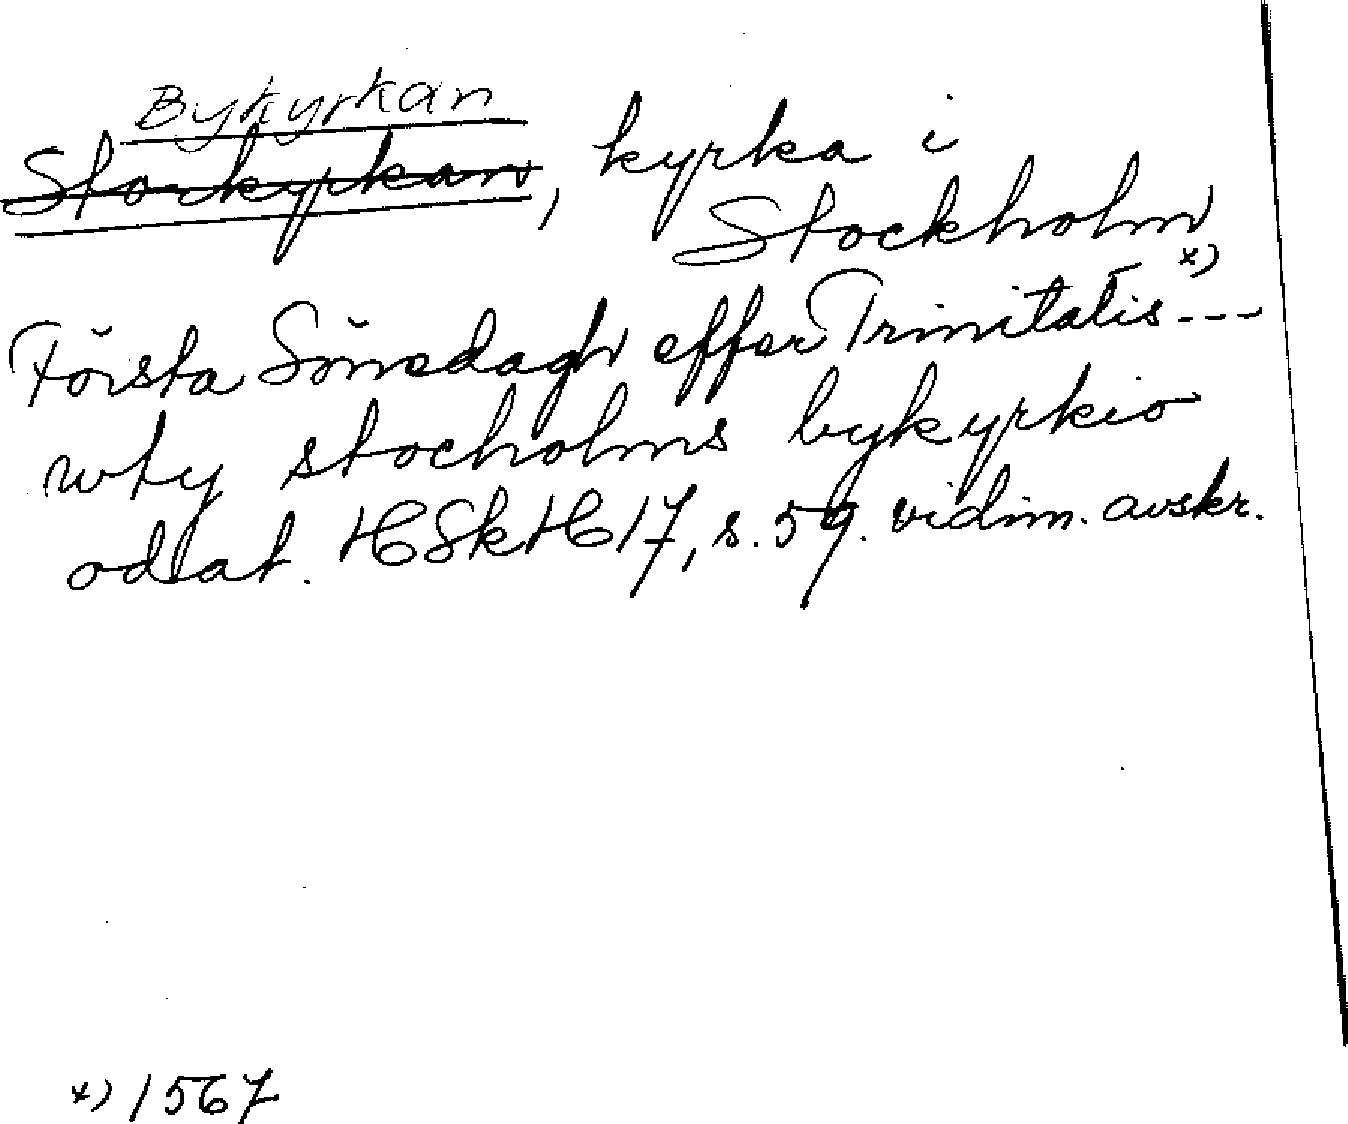 Bykyrkan
Storkyrkan, kyrka i
Stockholm
Första Sönedagh effter Trinitatis *) ---
wty stocholms bykyrkio
odat. HSkH 17, s. 59. vidim. avskr.
*) 1567